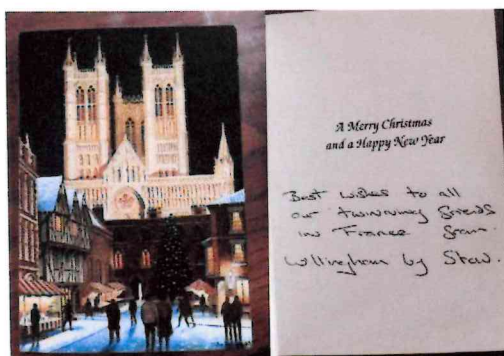 A Merry Christmas
and a Happy New Year
Best wishes to all
our twinning friends
in France from
Willingham by Stow.